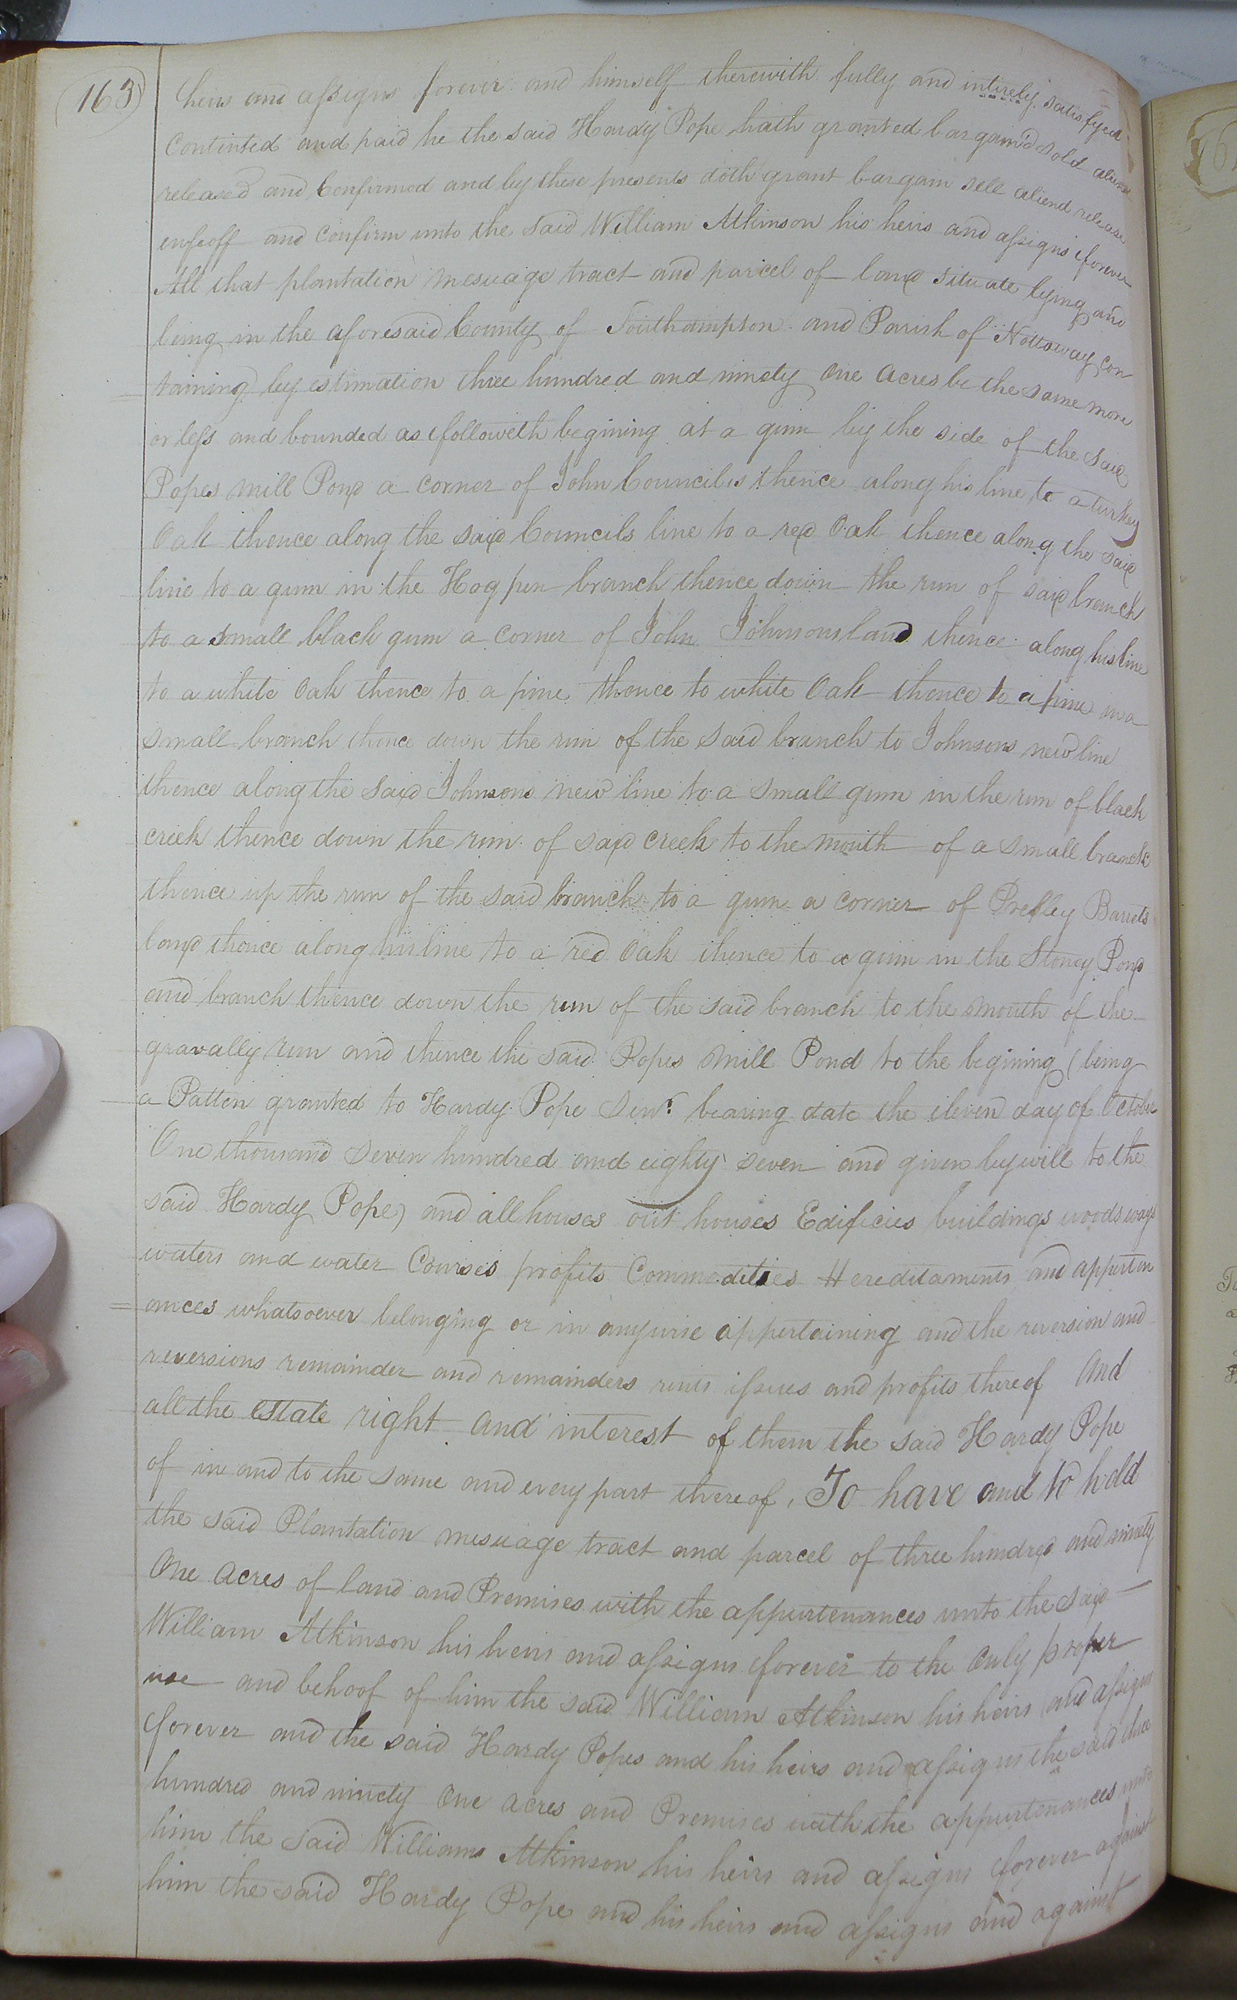 163
heirs and assigns forever and himself therewith fully and intirely satisfyed
Contented and paid he the said Hardy Pope hath granted bargain'd sold aliened
released and Confirmed and by these presents doth grant bargain sell aliend release
enfeoff and confirm unto the said William Atkinson his heirs and assigns forever
All that plantation mesuage tract and parcel of land situate lying and
being in the aforesaid County of Southampson and Parish of Nottoway con
taining by estimation three hundred and ninety One Acres be the same more
or less and bounded as followeth begining at a gum by the side of the said
Popes mill Pond a corner of John Councils thence along his line to a turkey
Oak thence along the said Councils line to a red Oak thence along the said
line to a gum in the Hog pen branch thence down the run of said branch
to a small black gum a corner of John Johnsons land thence along his line
to a white Oak thence to a pine thence to white Oak thence to a pine in a
small branch thence down the run of the said branch to Johnsons new line
thence along the said Johnsons new line to a small gum in the run of black
creek thence down the run of said creek to the mouth of a small branch
thence up the run of the said branch to a gum a corner of Presley Barrets
land thence along his line to a red Oak thence to a gum in the Stoney Pond
and branch thence down the run of the said branch to the mouth of the
gravally run and thence the said Popes mill Pond to the begining (being
a Patten granted to Hardy Pope Senr. bearing date the eleven day of October
One thousand seven hundred and eighty seven and given by will to the
said Hardy Pope) and all houses out houses Edificies buildings woods ways
waters and water Courses profits Commodities Hereditaments and apperten
ances whatsoever belonging or in anywise appertaining and the reversion and
reversions remainder and remainders rents issues and profits thereof And
all the estate right and interest of them the said Hardy Pope
of in and to the same and every part thereof, To have and to hold
the said Plantation mesuage tract and parcel of three hundred and ninety
One Acres of land and Premises with the appurtenances unto the said
William Atkinson his heirs and assigns forever to the Only proper
use and behoof of him the said William Atkinson his heirs and assigns
forever and the said Hardy Popes and his heirs and assigns the said three
hundred and ninety One acres and Premises with the appurtenances unto
him the said William Atkinson his heirs and assigns forever against
him the said Hardy Pope and his heirs and assigns and against